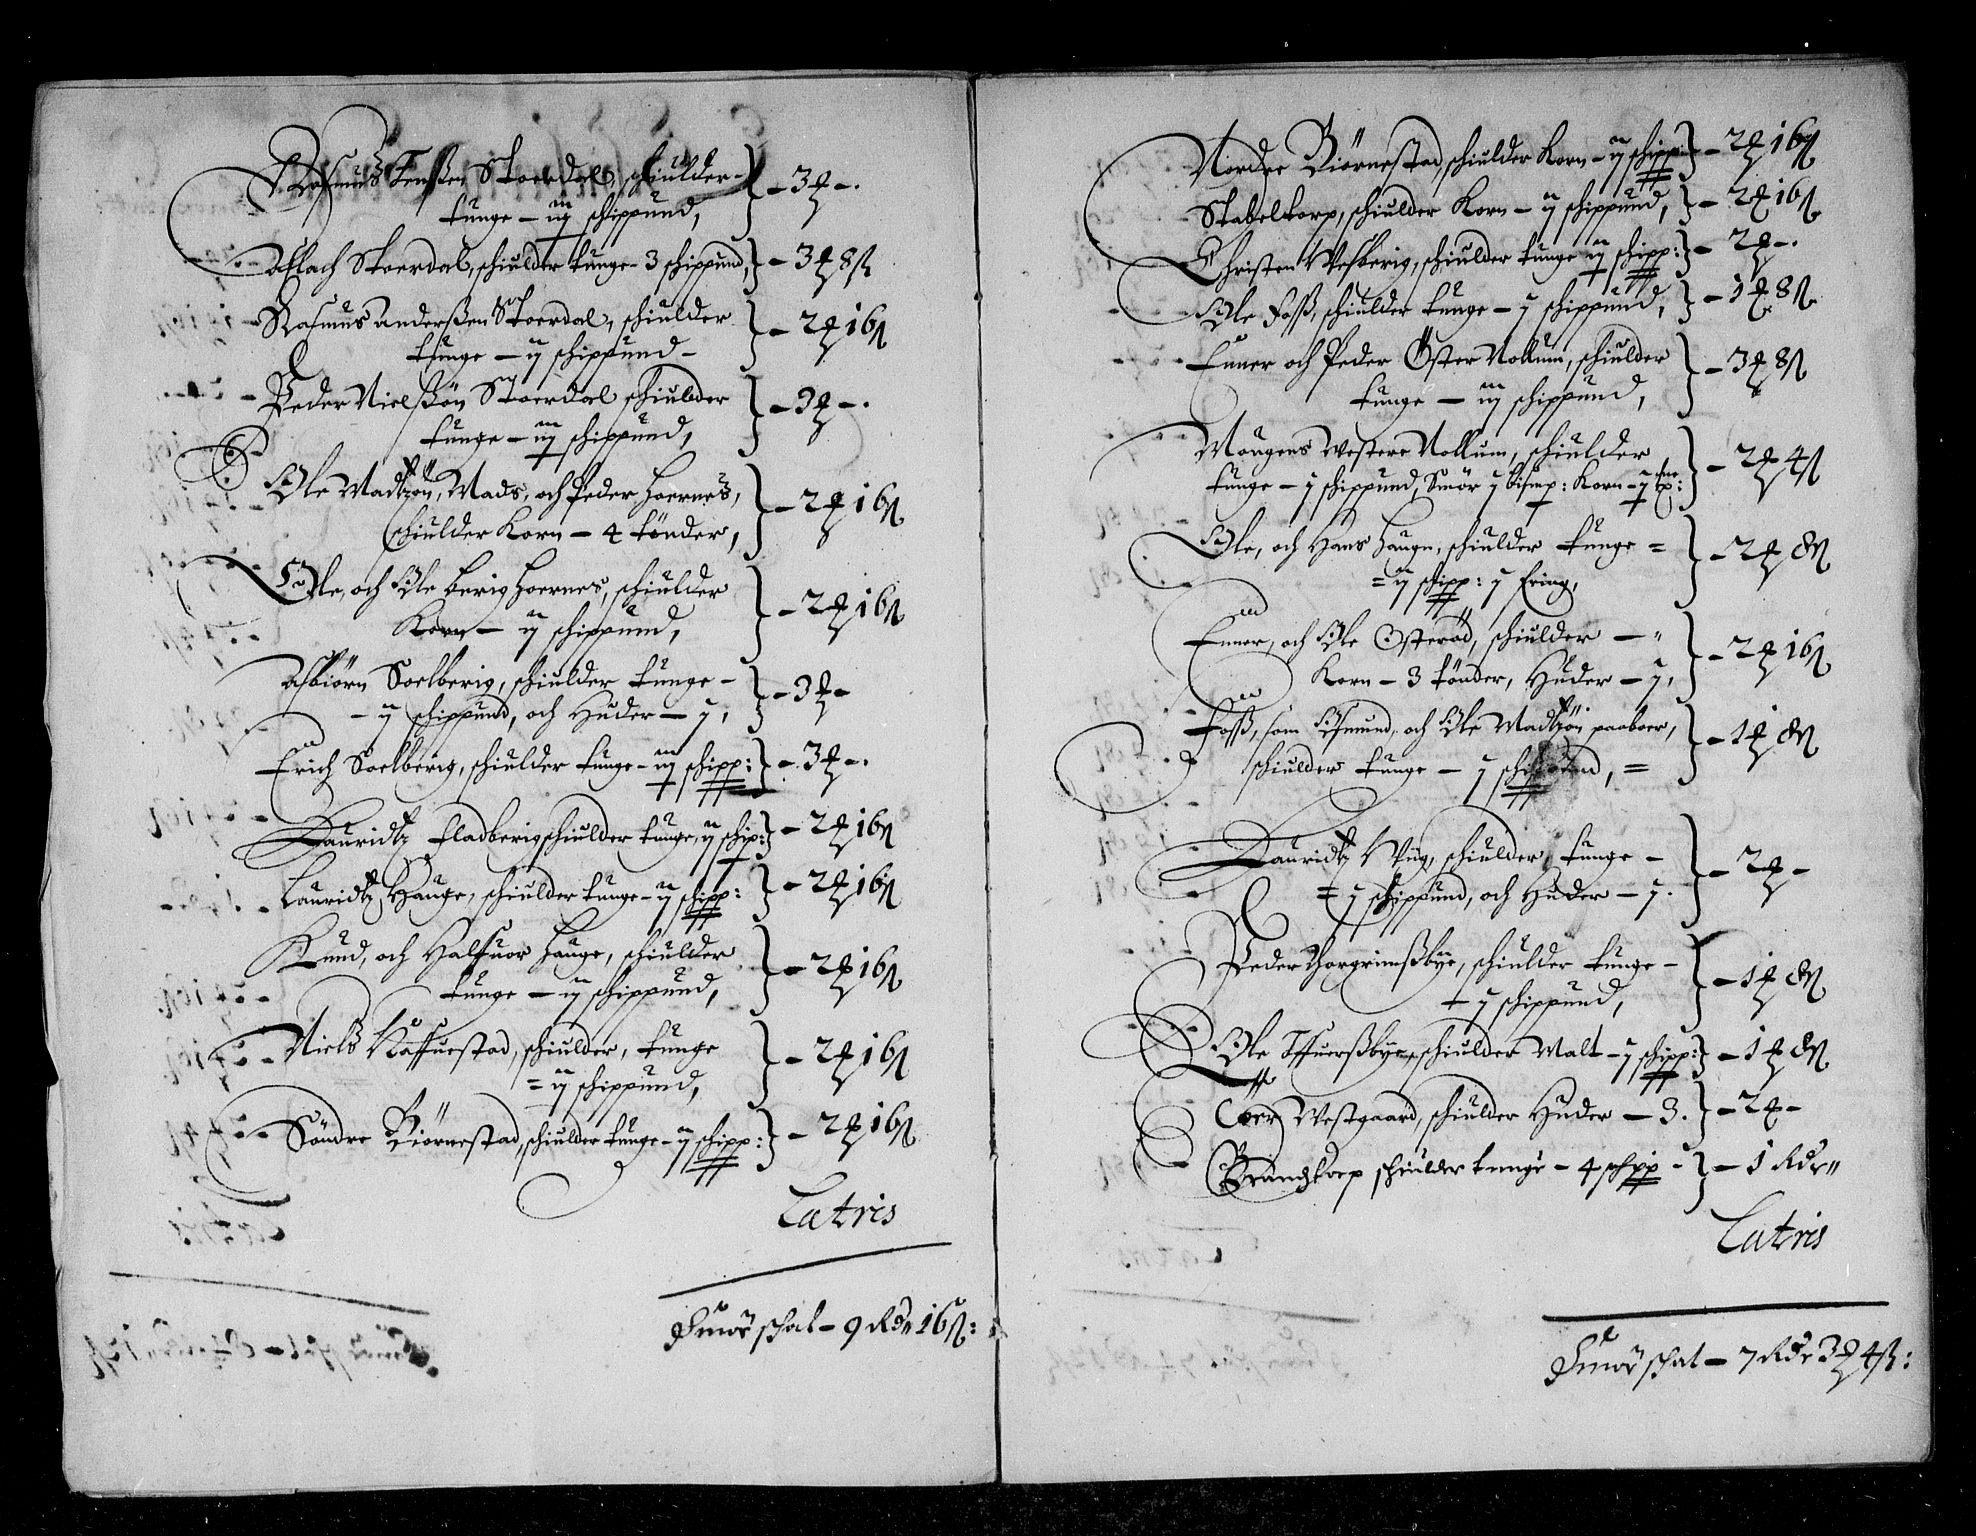 Rasmus Jenßen Stoerdal, schiulder
tunge – iij schippund,  – 3 ꝺ –.
Aslach Stoerdal, schiulder tunge – 3 schippund, – 3 ꝺ 8 ß
Rasmus Anderßen Stoerdal, schiulder
tunge – ij schippund – – 2 ꝺ 16 ß
Peder Nielßøn Stoerdal schiulder
tunge – iij schippund, – 3 ꝺ –.
Ole Madtzøn, Mads, och Peder Hoernes,
schiulder Korn – 4 tønder, – 2 ꝺ 16 ß
Ole, och Ole berig Hoernes, schiulder
Korn – ij schippund, – 2 ꝺ 16 ß
Asbiørn Soelberig, schiulder tunge –
– ij schippund, och Huder – j, – 3 ꝺ –
Erich Soelberig, schiulder tunge – iij schipp: – 3 ꝺ –.
Lauridtz Fladberig schiulder tunge, ij schip: – 2 ꝺ 16 ß
Lauridtz Hauge, schiulder tunge – ij schipp: – 2 ꝺ 16 ß
Knud, och Halfuor Hauge, schiulder
tunge – ij schippund, – 2 ꝺ 16 ß
Niels Kaffuestad, schiulder, tunge
= ij schippund, – 2 ꝺ 16 ß
Söndre Biörnestad, schiulder tunge – ij schipp: – 2 ꝺ 16 ß
Latris
Smör schat – 9 Rdr 16 ß:
Nordre Biörnestad, schiulder Korn – ij schipp: – 2 ꝺ 16 ß
Stabeltorp, schiulder Korn – ij schippund, – 2 ꝺ 16 ß
Christen Wesberig, schiulder tunge ij schipp: – 2 ꝺ –.
Ole Foß, schiulder tunge – j schippund, – 1 ꝺ 8 ß
Enner och Peder Öster Nollum, schiulder
tunge – iij schippund, – 3 ꝺ 8 ß
Mougens Westere Nollum, schiulder
tunge – j schippund, Smör j bismp: Korn – j – 2 ꝺ 4 ß
Ole, och Hans Haugn, schiulder tunge =
= ij schipp: j fring, – 2 ꝺ 8 ß
Enner, och Ole Österöd, schiulder –
Korn – 3 tönder, Huder – j, – 2 ꝺ 16 ß
Foß, som Osmund, och Ole Madtzøn paaboer,
schiulder tunge – j schippund, = – 1 ꝺ 8 ß
Lauridtz Wiig, schiulder, tunge –
= j schippund, och Huder – j. – 2 ꝺ –
Peder Thorgrimßbye, schiulder tunge –
– j schippund, – 1 ꝺ 8 ß
Ole Iffuerßbye, schiulder Malt – j schipp: – 1 ꝺ 8 ß
Westgaard, schiulder Huder – 3. – 2 ꝺ –
Brandtorp schiulder tunge – 4 schpp – – 1 Rdr
Latris
Smör schat – 7 Rdr 3 ꝺ 4 ß: